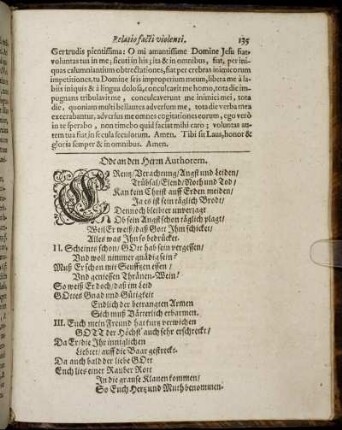 Relatio facti violenti. 135
Gertrudis pientissima: O mi amantissime Domine Jesu fiat
voluntas tua in me; sicuti in his; ita & in omnibus, fiat, per ini-
quas calumniantium obtrectationes, fiat per crebras iniquorum
impetitiones, tu Domine scis improperium meum, libera me à la-
biis iniquis & à lingua dolosa, conculcavit me homo, tota die im-
pugnans tribulavit me, conculcaverunt me inimici mei, tota
die, quoniam multi bellantes adversum me, tota die verba mea
execrabantur, adversus me omnes cogitationes eorum, ego verò
in te sperabo, non timebo quid faciat mihi caro; voluntas au-
tem tua fiat, in secula seculorum. Amen. Tibi sit Laus, honor &
gloria semper & in omnibus. Amen.
Ode an den Herrn Authorem.
CReutz/ Verachtung/ Angst und Leiden/
Trübsal/ Elend/ Noth und Tod/
Kan kein Christ auff Erden meiden/
Ja es ist sein täglich Brodt/
Dennoch bleibet unverzagt
Ob sein Angst schon täglich plagt/
Weil Er weiß/ daß Gott Ihm schicket/
Alles was Ihn so bedrücket.
II. Scheinet schon/ GOtt hab sein vergessen/
Und woll nimmer gnädig sein?
Muß Er schon mit Seufftzen essen/
Und geniessen Thränen-Wein?
So weiß Er doch/ daß im Leid
GOttes Gnad und Gütigkeit
Endlich der betrangten Armen
Sich muß Vätterlich erbarmen.
III. Euch mein Freund hat kurtz verwichen
GOTT der Höchst/ auch sehr erschreckt/
Da Er/ die Ihr inniglichen
Liebtet/ auff die Baar gestreckt.
Da auch bald der liebe GOtt
Euch ließ einer Rauber Rott
In die grause Klauen kommen/
So Euch Hertz und Muth benommen-